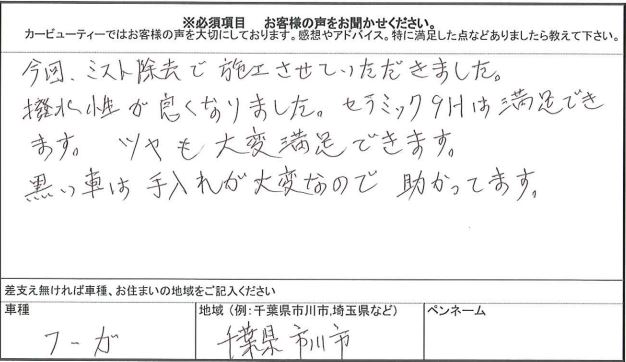 ※必須項目 お客様の声をお聞かせください。
カービューティーではお客様の声を大切にしております。感想やアドバイス。特に満足した点などありましたら教えて下さい。
今回、ミスト除去で施工させていただきました。
撥水性が良くなりました。セラミック9Hは満足でき
ます。ツヤも大変満足できます。
黒い車は手入れが大変なので助かってます。
差支え無ければ車種、お住まいの地域をご記入ください
車種 地域（例：千葉県市川市,埼玉県など） ペンネーム
フーガ 千葉県市川市